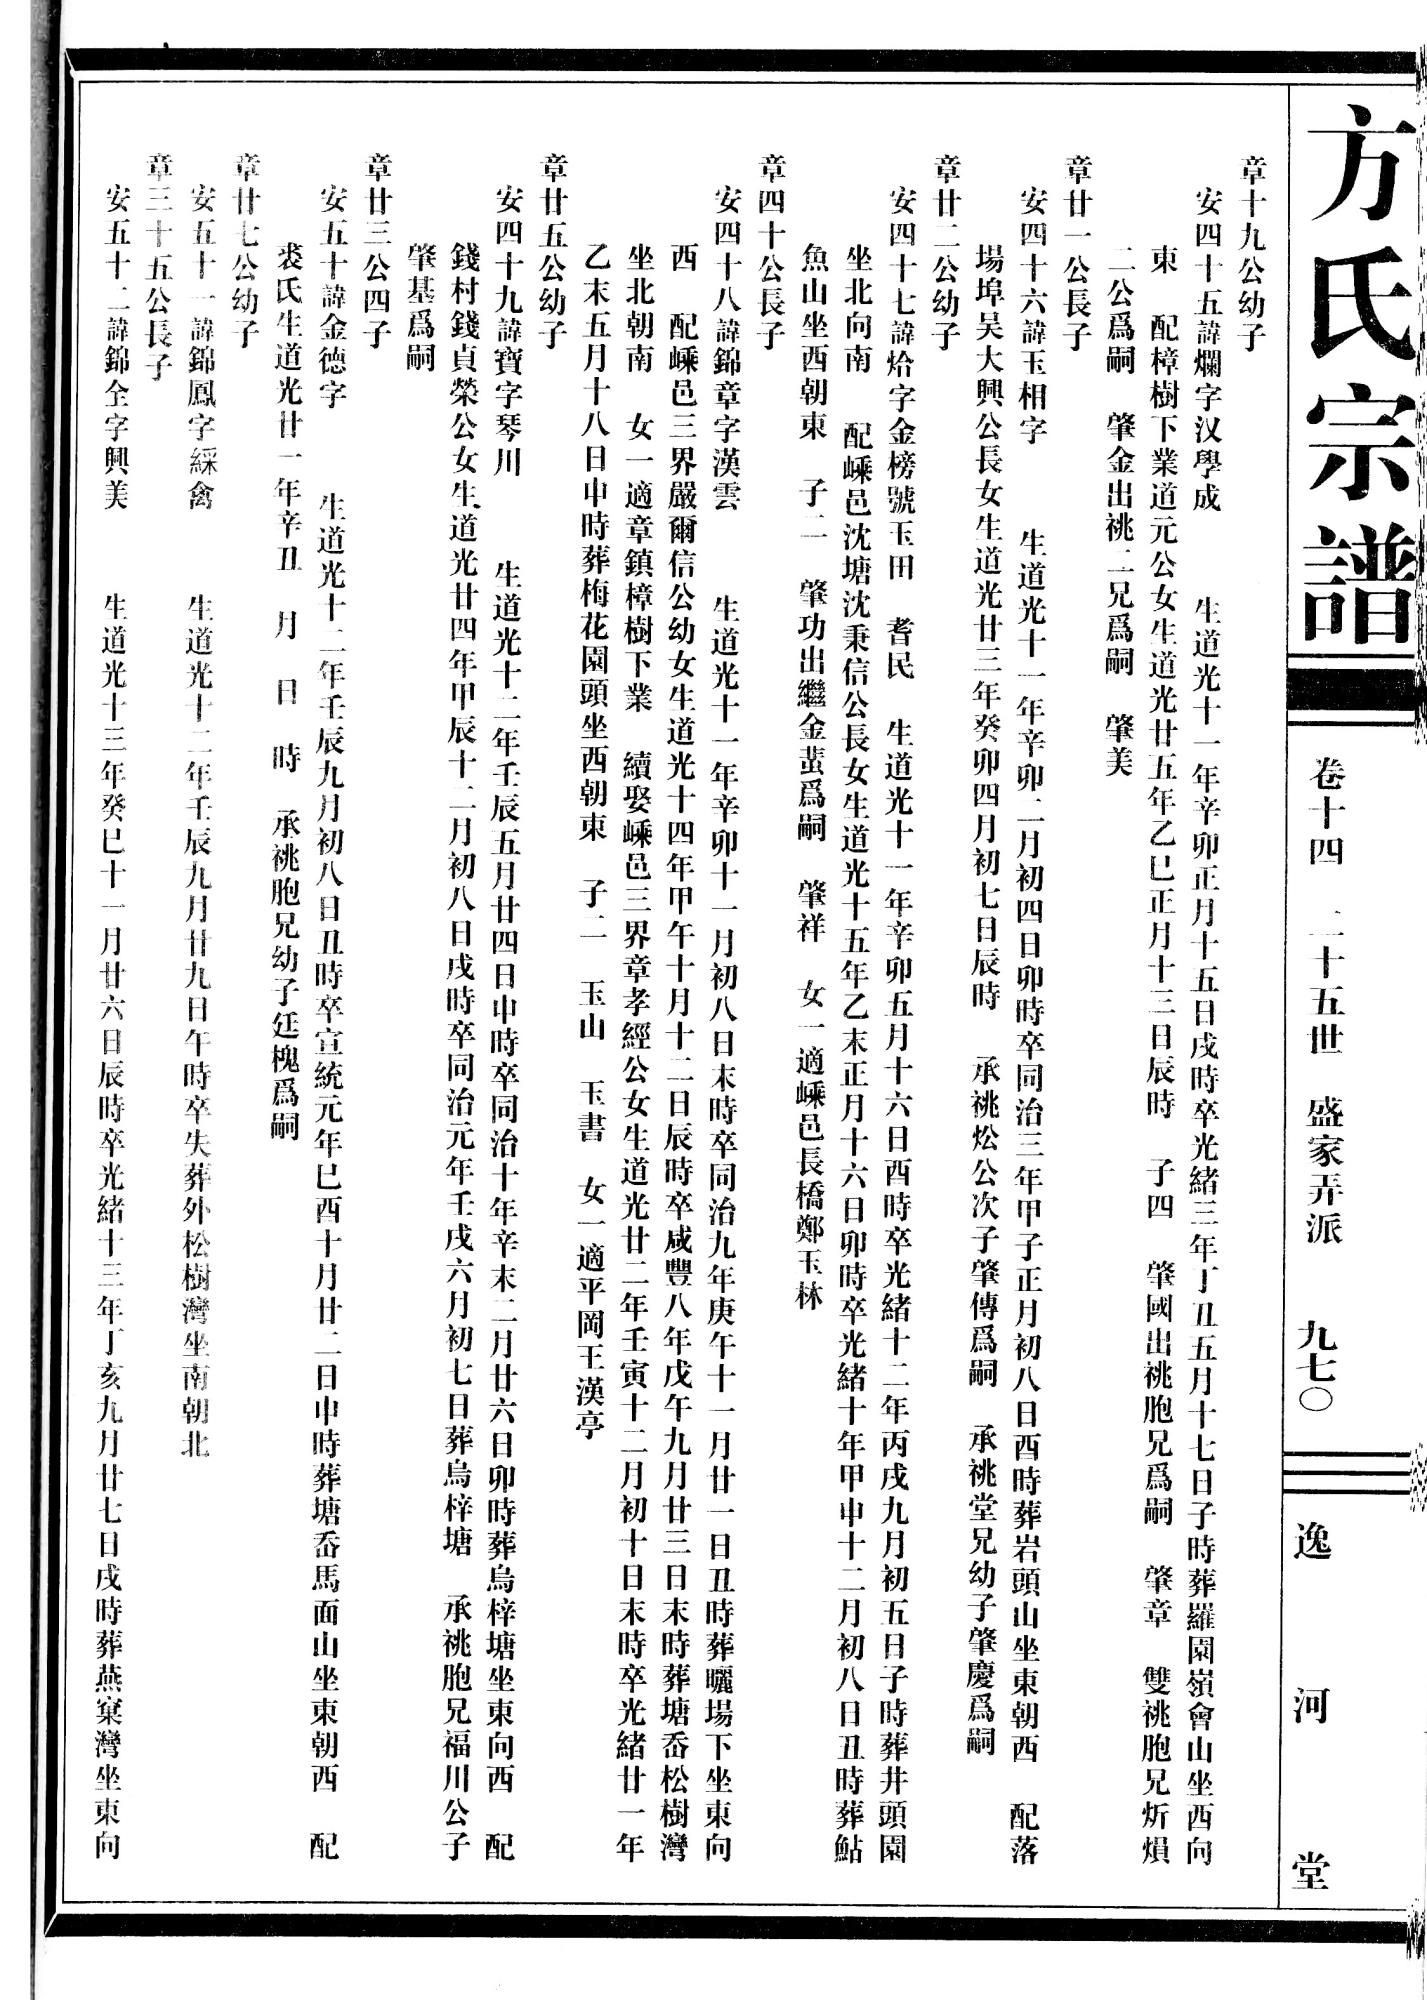 方氏宗譜
卷十四　二十五世　盛家弄派　九七〇
逸河堂
章十九公幼子
安四十五諱爛字汉學成　生道光十一年辛卯正月十五日戌時卒光緒三年丁丑五月十七日子時葬羅園嶺會山坐西向
東　配樟樹下業道元公女生道光廿五年乙巳正月十三日辰時　子四　肇國出祧胞兄爲嗣　肇章　雙祧胞兄炘熉
二公爲嗣　肇金出祧二兄爲嗣　肇美
章廿一公長子
安四十六諱玉相字　生道光十一年辛卯二月初四日卯時卒同治三年甲子正月初八日酉時葬岩頭山坐東朝西　配落
場埠吴大興公長女生道光廿三年癸卯四月初七日辰時　承祧炂公次子肇傳爲嗣　承祧堂兄幼子肇慶爲嗣
章廿二公幼子
安四十七諱烚字金榜號玉田　耆民　生道光十一年辛卯五月十六日酉時卒光緒十二年丙戌九月初五日子時葬井頭園
坐北向南　配嵊邑沈塘沈秉信公長女生道光十五年乙未正月十六日卯時卒光緒十年甲申十二月初八日丑時葬鮎
魚山坐西朝東　子二　肇功出繼金蜚爲嗣　肇祥　女一適嵊邑長橋鄭玉林
章四十公長子
安四十八諱錦章字漢雲　生道光十一年辛卯十一月初八日未時卒同治九年庚午十一月廿一日丑時葬曬場下坐東向
西　配嵊邑三界嚴爾信公幼女生道光十四年甲午十月十二日辰時卒咸豐八年戊午九月廿三日未時葬塘岙松樹灣
坐北朝南　女一適章鎮樟樹下業　續娶嵊邑三界章孝經公女生道光廿二年壬寅十二月初十日未時卒光緒廿一年
乙未五月十八日申時葬梅花園頭坐西朝東　子二　玉山　玉書　女一適平岡王漢亭
章廿五公幼子
安四十九諱寶字琴川　生道光十二年壬辰五月廿四日申時卒同治十年辛未二月廿六日卯時葬烏梓塘坐東向西　配
錢村錢貞榮公女生道光廿四年甲辰十二月初八日戌時卒同治元年壬戌六月初七日葬烏梓塘　承祧胞兄福川公子
肇基爲嗣
章廿三公四子
安五十諱金德字　生道光十二年壬辰九月初八日丑時卒宣統元年巳酉十月廿二日申時葬塘岙馬面山坐東朝西　配
裘氏生道光廿一年辛丑　月　日　時　承祧胞兄幼子廷槐爲嗣
章廿七公幼子
安五十一諱錦鳳字綵禽　生道光十二年壬辰九月廿九日午時卒失葬外松樹灣坐南朝北
章三十五公長子
安五十二諱錦全字興美　生道光十三年癸巳十一月廿六日辰時卒光緒十三年丁亥九月廿七日戌時葬燕窠灣坐東向